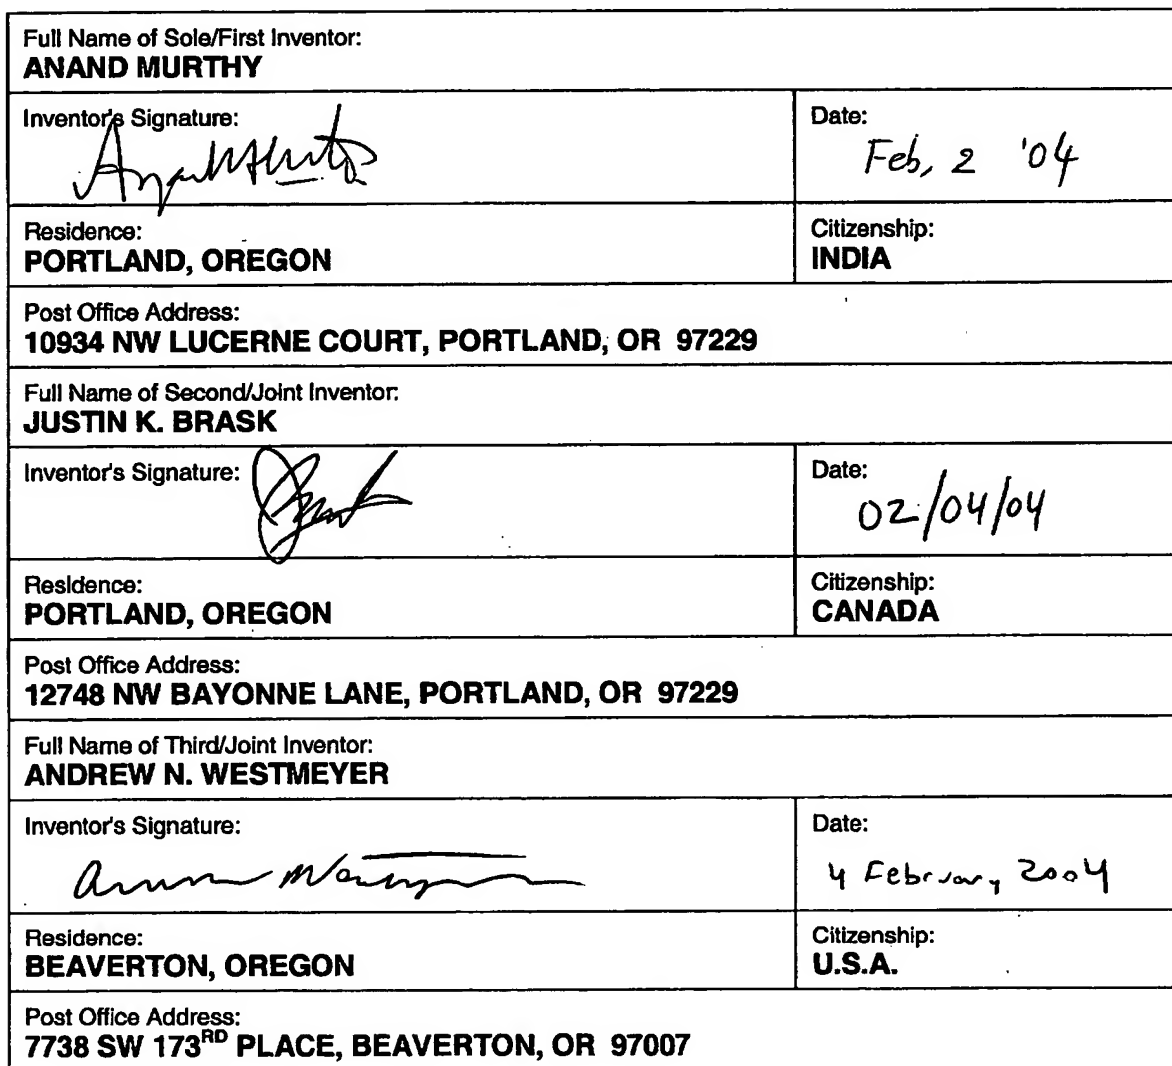 Full Name of Sole/First Inventor:
ANAND MURTHY
Inventor's Signature:
Date:
Feb, 2 '04
Residence:
PORTLAND, OREGON
Citizenship:
INDIA
Post Office Address:
10934 NW LUCERNE COURT, PORTLAND, OR 97229
Full Name of Second/Joint Inventor:
JUSTIN K. BRASK
Inventor's Signature:
Date:
02/04/04
Residence:
PORTLAND, OREGON
Citizenship:
CANADA
Post Office Address:
12748 NW BAYONNE LANE, PORTLAND, OR 97229
Full Name of Third/Joint Inventor:
ANDREW N. WESTMEYER
Inventor's Signature:
Date:
4 February 2004
Residence:
BEAVERTON, OREGON
Citizenship:
U.S.A.
Post Office Address:
7738 SW 173RD PLACE, BEAVERTON, OR 97007